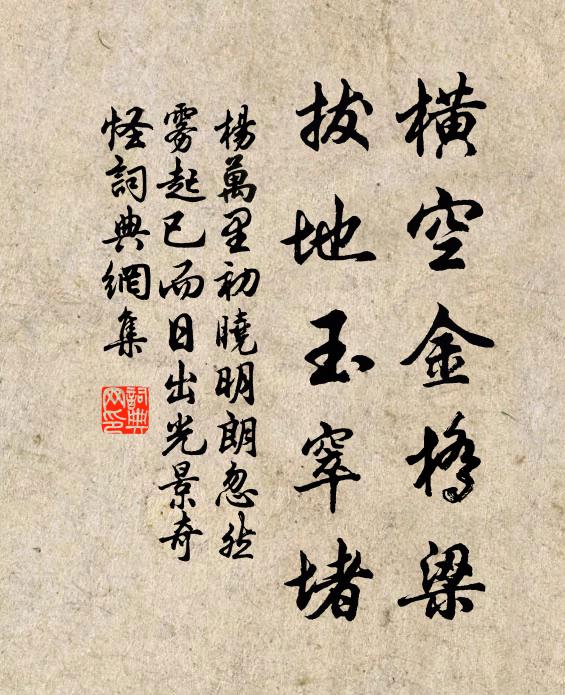 橫空金橋梁
拔地玉窣堵
楊萬里初曉明朗忽然
霧起已而日出光景奇
怪詞典網集
詞典
网印